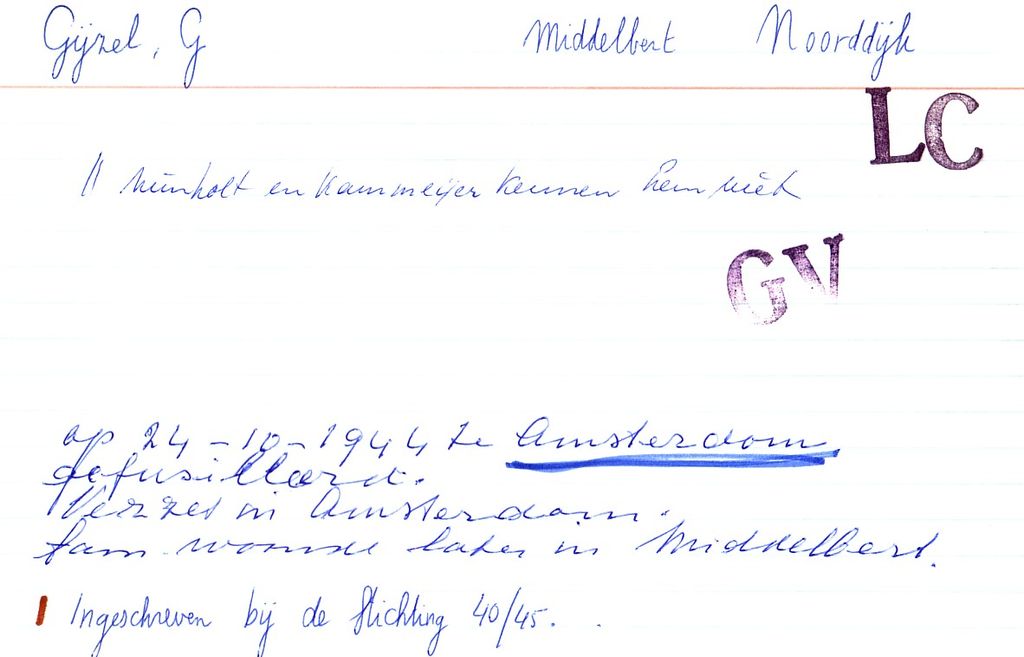 Gijzel, G Middelbert Noorddijk
LC
" Nunholt en Kammeijer kennen hem niet
GV
op 24-10-1944 te Amsterdam
gefusilleerd.
Verzet in Amsterdam.
fam. woonde later in Middelbert.
Ingeschreven bij de Stichting 40/45.